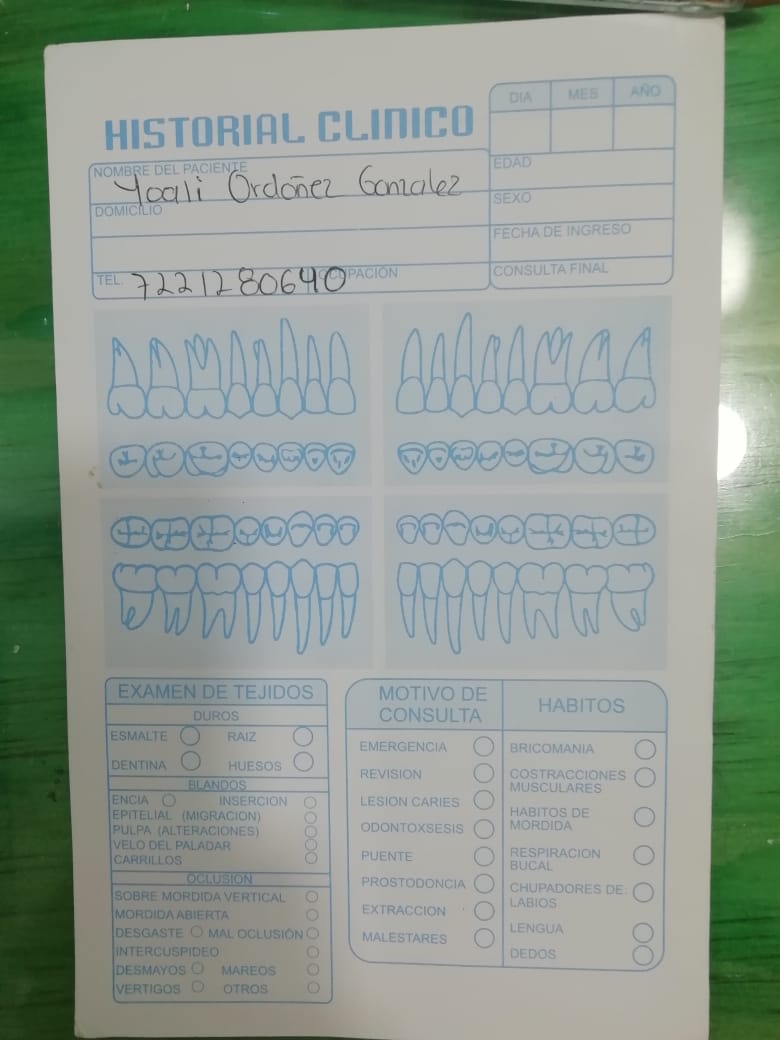 DIA MES AÑO
HISTORIAL CLINICO
NOMBRE DEL PACIENTE
Yoali Ordoñez Gonzalez
EDAD
DOMICILIO
SEXO
FECHA DE INGRESO
TEL. 7221280640 OCUPACIÓN
CONSULTA FINAL
EXAMEN DE TEJIDOS
DUROS
ESMALTE RAIZ
DENTINA HUESOS
BLANDOS
ENCIA INSERCION
EPITELIAL (MIGRACION)
PULPA (ALTERACIONES)
VELO DEL PALADAR
CARRILLOS
OCLUSION
SOBRE MORDIDA VERTICAL
MORDIDA ABIERTA
DESGASTE MAL OCLUSIÓN
INTERCUSPIDEO
DESMAYOS MAREOS
VERTIGOS OTROS
MOTIVO DE
CONSULTA
EMERGENCIA
REVISION
LESION CARIES
ODONTOXSESIS
PUENTE
PROSTODONCIA
EXTRACCION
MALESTARES
HABITOS
BRICOMANIA
COSTRACCIONES
MUSCULARES
HABITOS DE
MORDIDA
RESPIRACION
BUCAL
CHUPADORES DE:
LABIOS
LENGUA
DEDOS